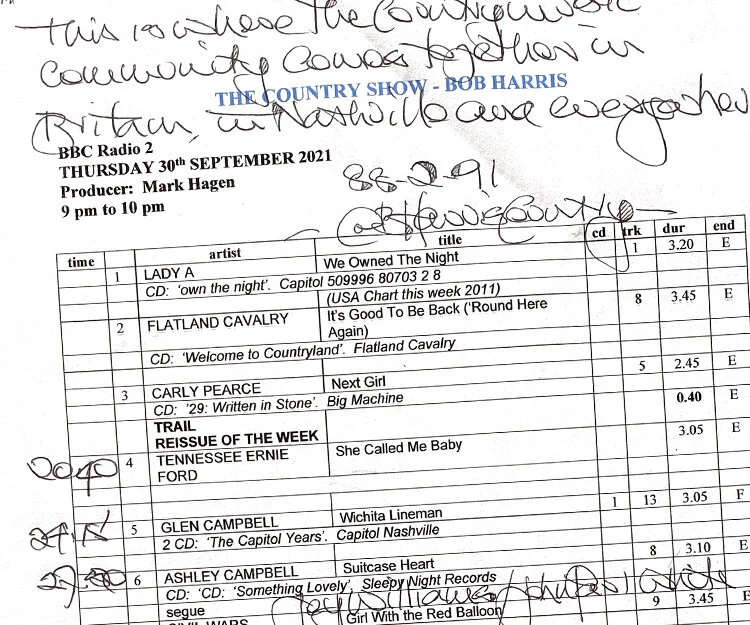 This is where the Country music
community comes together in
THE COUNTRY SHOW - BOB HARRIS
Britain, in Nashville and everywhere
BBC Radio 2
THURSDAY 30th SEPTEMBER 2021
Producer: Mark Hagen
9 pm to 10 pm
88-2-91
time artist title cd trk dur end
1 LADY A We Owned The Night 1 3.20 E
CD: 'own the night'. Capitol 509996 80703 2 8
(USA Chart this week 2011)
2 FLATLAND CAVALRY It's Good To Be Back ('Round Here 8 3.45 E
Again)
CD: 'Welcome to Countryland'. Flatland Cavalry
3 CARLY PEARCE Next Girl 5 2.45 E
CD: '29: Written in Stone'. Big Machine
TRAIL 0.40 E
REISSUE OF THE WEEK
4 TENNESSEE ERNIE She Called Me Baby 3.05 E
FORD
5 GLEN CAMPBELL Wichita Lineman 1 13 3.05 F
2 CD: 'The Capitol Years'. Capitol Nashville
6 ASHLEY CAMPBELL Suitcase Heart 8 3.10 E
CD: 'CD: 'Something Lovely'. Sleepy Night Records
segue
CIVIL WARS Girl With the Red Balloon 9 3.45 E